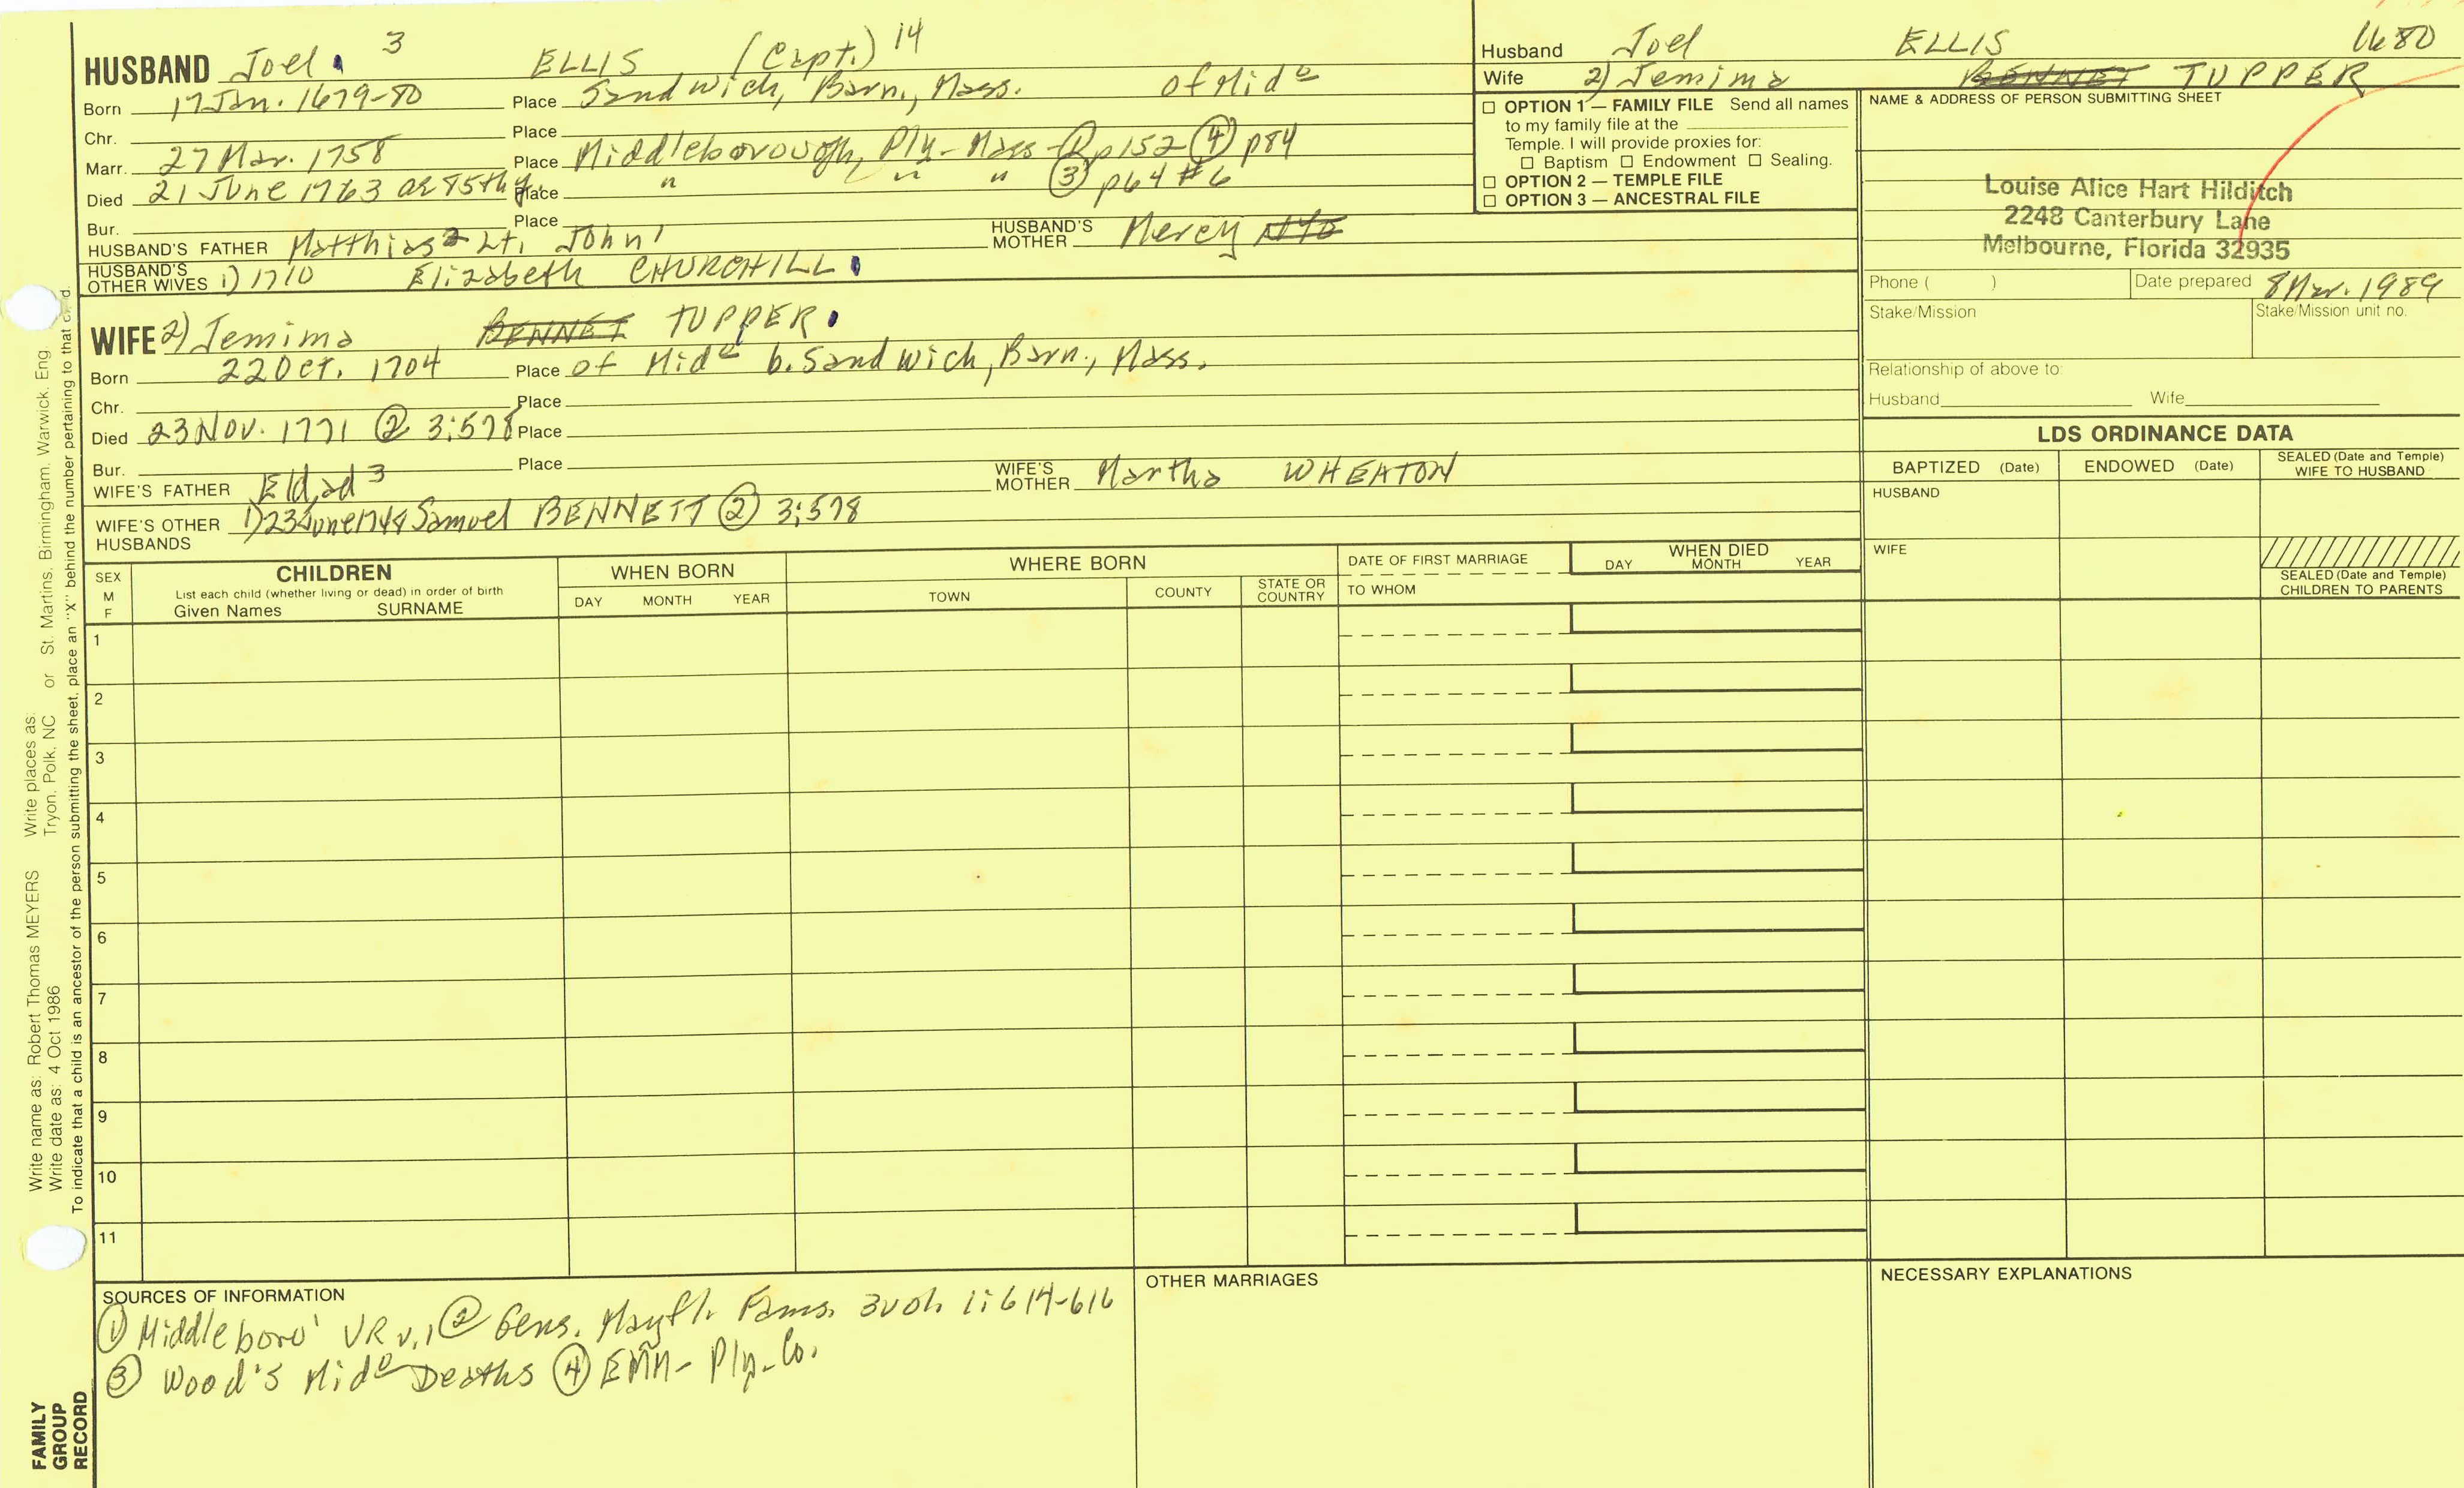 HUSBAND Joel 3 ELLIS (Capt.) 14
Born 17 Jan. 1679-80 Place Sandwich, Barn., Mass. of Mide
Chr. Place
Marr. 27 Mar. 1758 Place Middleborough, Ply-Mass p152 ④ p84
Died 21 June 1763 ae 85th y. Place " " " ③ p64 #6
Bur. Place
HUSBAND'S FATHER Matthias 2 Lt. John 1 HUSBAND'S MOTHER Mercy NYE
HUSBAND'S OTHER WIVES 1) 1710 Elizabeth CHURCHILL
WIFE 2) Jemima BENNET TUPPER
Born 22 Oct. 1704 Place of Mide b. Sandwich, Barn., Mass.
Chr. Place
Died 23 Nov. 1771 ② 3:578 Place
Bur. Place
WIFE'S FATHER Eldad 3 WIFE'S MOTHER Martha WHEATON
WIFE'S OTHER HUSBANDS 1) 23 June 1748 Samuel BENNETT ② 3:578
Husband Joel ELLIS 1680
Wife 2) Jemima BENNET TUPPER
☐ OPTION 1 — FAMILY FILE Send all names
to my family file at the
Temple. I will provide proxies for:
☐ Baptism ☐ Endowment ☐ Sealing.
☐ OPTION 2 — TEMPLE FILE
☐ OPTION 3 — ANCESTRAL FILE
NAME & ADDRESS OF PERSON SUBMITTING SHEET
Louise Alice Hart Hilditch
2248 Canterbury Lane
Melbourne, Florida 32935
Phone ( ) Date prepared 8 Mar. 1989
Stake/Mission Stake/Mission unit no.
Relationship of above to:
Husband Wife
LDS ORDINANCE DATA
BAPTIZED (Date) ENDOWED (Date) SEALED (Date and Temple) WIFE TO HUSBAND
HUSBAND
WIFE
SEALED (Date and Temple) CHILDREN TO PARENTS
SEX M F
CHILDREN
List each child (whether living or dead) in order of birth
Given Names SURNAME
WHEN BORN
DAY MONTH YEAR
WHERE BORN
TOWN COUNTY STATE OR COUNTRY
DATE OF FIRST MARRIAGE
TO WHOM
WHEN DIED
DAY MONTH YEAR
1
2
3
4
5
6
7
8
9
10
11
SOURCES OF INFORMATION
① Middleboro' VR v.1 ② Gens. Mayfl. Fams. 3vol. 1:614-616
③ Wood's Mide Deaths ④ EMM- Ply-Co.
OTHER MARRIAGES
NECESSARY EXPLANATIONS
Write name as: Robert Thomas MEYERS Write places as: St. Martins, Birmingham, Warwick, Eng.
Write date as: 4 Oct 1986 Tryon, Polk, NC or
To indicate that a child is an ancestor of the person submitting the sheet, place an "X" behind the number pertaining to that
FAMILY
GROUP
RECORD